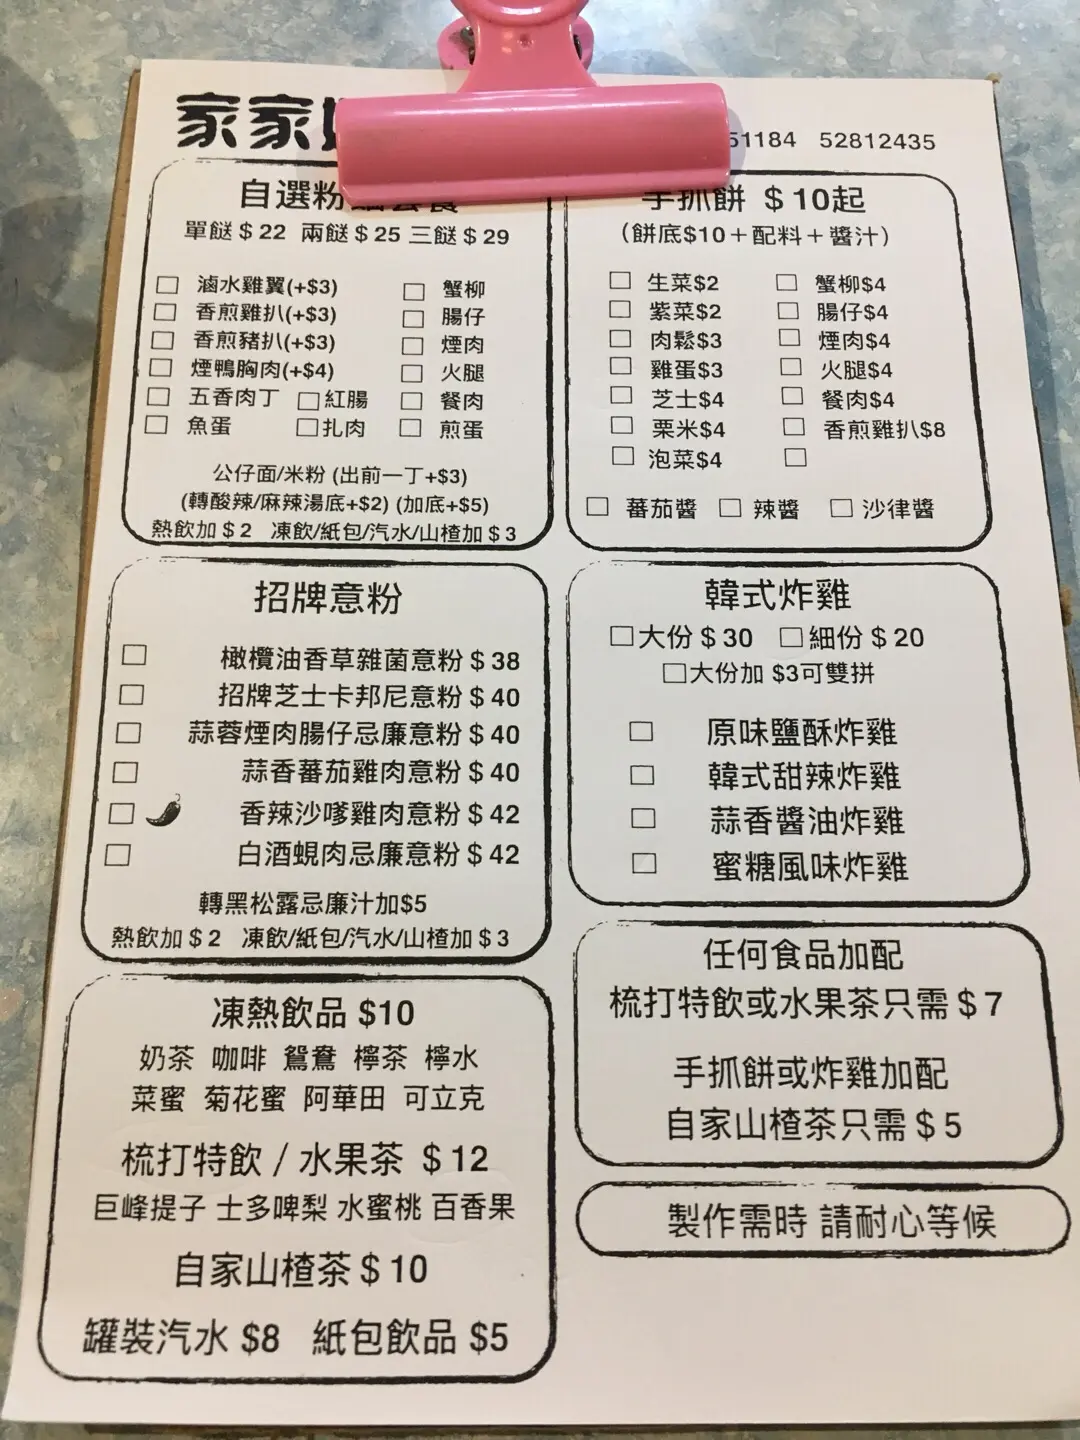 家家
51184 52812435
自選粉
單餸$22 兩餸$25 三餸$29
滷水雞翼(+$3) 蟹柳
香煎雞扒(+$3) 腸仔
香煎豬扒(+$3) 煙肉
煙鴨胸肉(+$4) 火腿
五香肉丁 紅腸 餐肉
魚蛋 扎肉 煎蛋
公仔面/米粉 (出前一丁+$3)
(轉酸辣/麻辣湯底+$2) (加底+$5)
熱飲加$2 凍飲/紙包/汽水/山楂加$3
手抓餅 $10起
(餅底$10+配料+醬汁)
生菜$2 蟹柳$4
紫菜$2 腸仔$4
肉鬆$3 煙肉$4
雞蛋$3 火腿$4
芝士$4 餐肉$4
栗米$4 香煎雞扒$8
泡菜$4
蕃茄醬 辣醬 沙律醬
招牌意粉
橄欖油香草雜菌意粉$38
招牌芝士卡邦尼意粉$40
蒜蓉煙肉腸仔忌廉意粉$40
蒜香蕃茄雞肉意粉$40
香辣沙嗲雞肉意粉$42
白酒蜆肉忌廉意粉$42
轉黑松露忌廉汁加$5
熱飲加$2 凍飲/紙包/汽水/山楂加$3
韓式炸雞
大份$30 細份$20
大份加 $3可雙拼
原味鹽酥炸雞
韓式甜辣炸雞
蒜香醬油炸雞
蜜糖風味炸雞
凍熱飲品 $10
奶茶 咖啡 鴛鴦 檸茶 檸水
菜蜜 菊花蜜 阿華田 可立克
梳打特飲 / 水果茶 $12
巨峰提子 士多啤梨 水蜜桃 百香果
自家山楂茶$10
罐裝汽水 $8 紙包飲品 $5
任何食品加配
梳打特飲或水果茶只需$7
手抓餅或炸雞加配
自家山楂茶只需$5
製作需時 請耐心等候